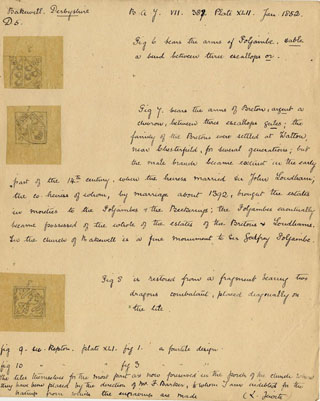 Bakewell. Derbyshire B.A.J. VII. 387 Plate XLII. Jan 1852.
D5.
Fig 6 bears the arms of Foljambe. sable
a bend between three escallops or.
Fig 7. bears the arms of Breton, argent a
chevron, between three escallops gules; the
family of the Bretons were settled at Walton,
near Chesterfield, for several generations; but
the male branch became extinct in the early
part of the 14th century, when the heiress married Sir John Loudham,
the co-heiress of whom, by marriage about 1392, brought the estates
in moieties to the Foljambes & the Beckerings; the Foljambes eventually
became possessed of the whole of the estates of the Bretons & Loudhams.
In the church of Bakewell is a fine monument to Sir Godfrey Foljambe.
Fig 8 is restored from a fragment bearing two
dragons combatant, placed diagonally on
the tile
fig 9. see. Repton. plate XLI. fig 1. a fourtile design
fig 10 fig 3
the tiles themselves for the most part are now preserved in the porch of the church where
they have been placed by the direction of Mr. F. Barker, to whom I am indebted for the
from which the engravings are made (L. Jewitt)